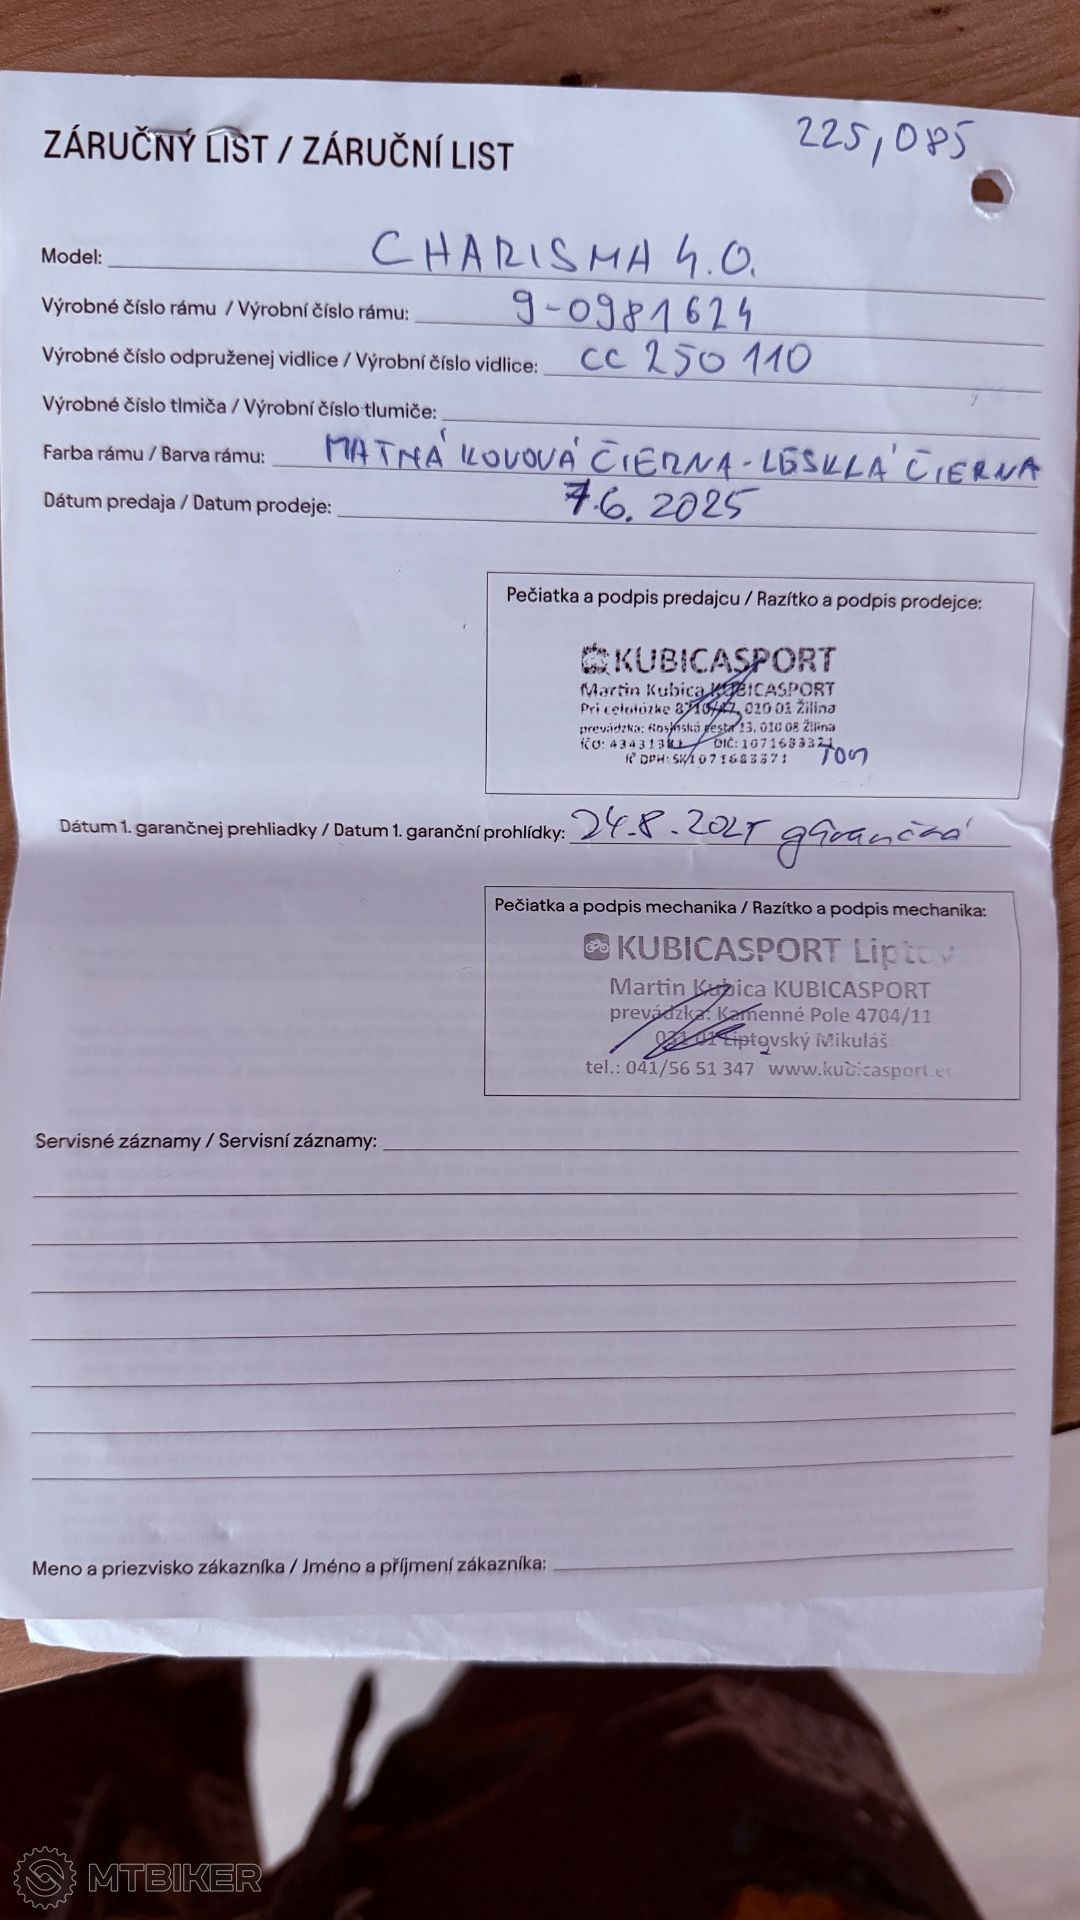 ZÁRUČNÝ LIST / ZÁRUČNÍ LIST
225,085
Model: CHARISMA 4.0.
Výrobné číslo rámu / Výrobní číslo rámu: 9-0981624
Výrobné číslo odpruženej vidlice / Výrobní číslo vidlice: CC 250 110
Výrobné číslo tlmiča / Výrobní číslo tlumiče:
Farba rámu / Barva rámu: MATNÁ KOVOVÁ ČIERNA-LESKLÁ ČIERNA
Dátum predaja / Datum prodeje: 7.6. 2025
Pečiatka a podpis predajcu / Razítko a podpis prodejce:
KUBICASPORT
Martin Kubica KUBICASPORT
Pri celulózke 010 01 Žilina
prevádzka: Rosinská cesta 13, 010 08 Žilina
IČO: DIČ: 1071683371
IČ DPH: SK1071683371
Dátum 1. garančnej prehliadky / Datum 1. garanční prohlídky: 24.8.2025 garančná
Pečiatka a podpis mechanika / Razítko a podpis mechanika:
KUBICASPORT Liptov
Martin Kubica KUBICASPORT
prevádzka: Kamenné Pole 4704/11
031 01 Liptovský Mikuláš
tel.: 041/56 51 347 www.kubicasport.eu
Servisné záznamy / Servisní záznamy:
Meno a priezvisko zákazníka / Jméno a příjmení zákazníka:
MTBIKER